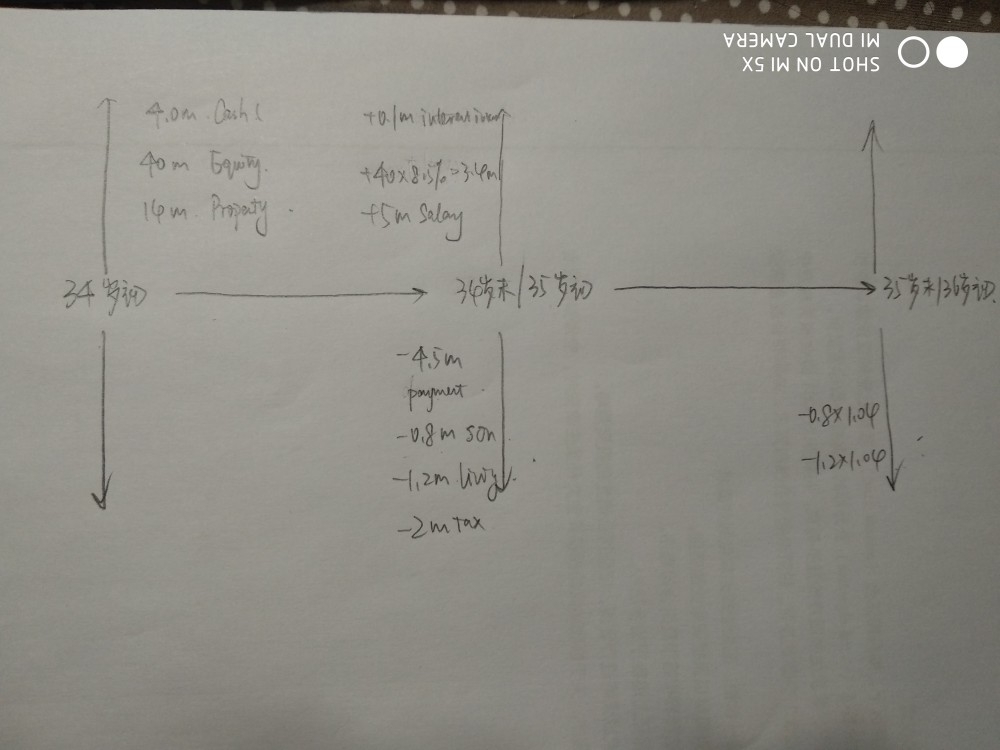 SHOT ON MI 5X
MI DUAL CAMERA
4.0m Cash
40m Equity.
14m Property
+0.1m interest
+40×8.5%=3.4m
+5m Salary
34岁初
34岁末/35岁初
35岁末/36岁初
-4.5m
payment
-0.8m son
-1.2m living
-2m tax
-0.8×1.04
-1.2×1.04